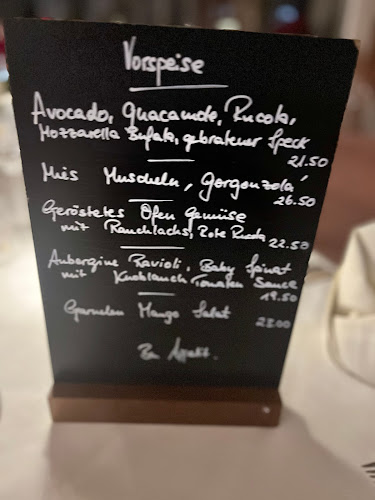 Vorspeise
Avocado, Guacamole, Rucola,
Mozzarella Bufala, gebratener Speck
21.50
Mies Muscheln, Gorgonzola
26.50
Geröstetes Ofen Gemüse
mit Rauchlachs, Rote Rucola
22.50
Aubergine Ravioli, Baby Spinat
mit Knoblauch Tomaten Sauce
19.50
Garnelen Mango Salat
23.00
Bon Appetit.